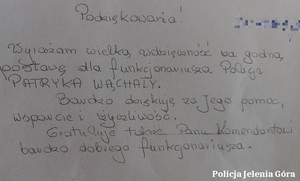 Podziękowania!
Wyrażam wielką wdzięczność za godną
postawę dla funkcjonariusza Policji
PATRYKA WĄCHAŁY.
Bardzo dziękuję za Jego pomoc,
wsparcie i życzliwość.
Gratuluję także Panu Komendantowi
bardzo dobrego funkcjonariusza.
Policja Jelenia Góra